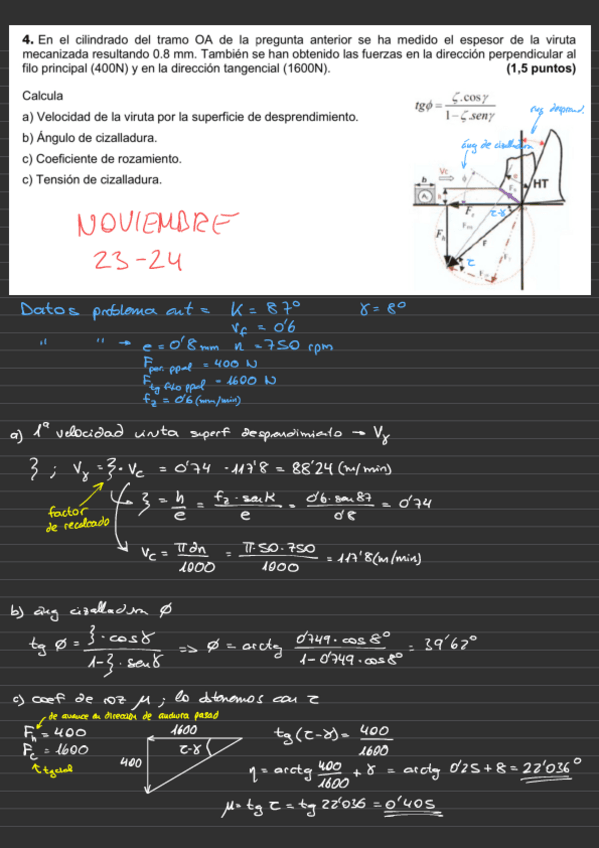 4. En el cilindrado del tramo OA de la pregunta anterior se ha medido el espesor de la viruta
mecanizada resultando 0.8 mm. También se han obtenido las fuerzas en la dirección perpendicular al
filo principal (400N) y en la dirección tangencial (1600N). (1,5 puntos)
Calcula
a) Velocidad de la viruta por la superficie de desprendimiento.
b) Ángulo de cizalladura.
c) Coeficiente de rozamiento.
c) Tensión de cizalladura.
tgϕ = ζ.cosγ / 1−ζ.senγ
ang desprend.
áng de cizalladura
Vc
b
HT
τ-γ
τ
F
NOVIEMBRE
23-24
Datos problema ant = K = 87° γ = 8°
Vf = 0'6
" " → e = 0'8 mm n = 750 rpm
F per. ppal = 400 N
F tg filo ppal = 1600 N
fz = 0'6 (mm/min)
a) 1ª velocidad viruta superf desprendimiento → Vγ
ζ ; Vγ = ζ · Vc = 0'74 · 117'8 = 88'24 (m/min)
factor de recalcado
ζ = h/e = fz · sen K / e = 0'6 · sen 87 / 0'8 = 0'74
Vc = π∂n / 1000 = π·50·750 / 1000 = 117'8 (m/min)
b) áng cizalladura ϕ
tg ϕ = ζ · cos γ / 1-ζ · sen γ => ϕ = arctg 0'749 · cos 8° / 1 - 0'749 · cos 8° = 39'62°
c) coef de roz μ ; lo obtenemos con τ
de avance en dirección de anchura pasad
Fh = 400
Fc = 1600
tgcial
1600
400
τ-γ
tg (τ-γ) = 400 / 1600
η = arctg 400/1600 + γ = arctg 0'25 + 8 = 22'036°
μ = tg τ = tg 22'036 = 0'405